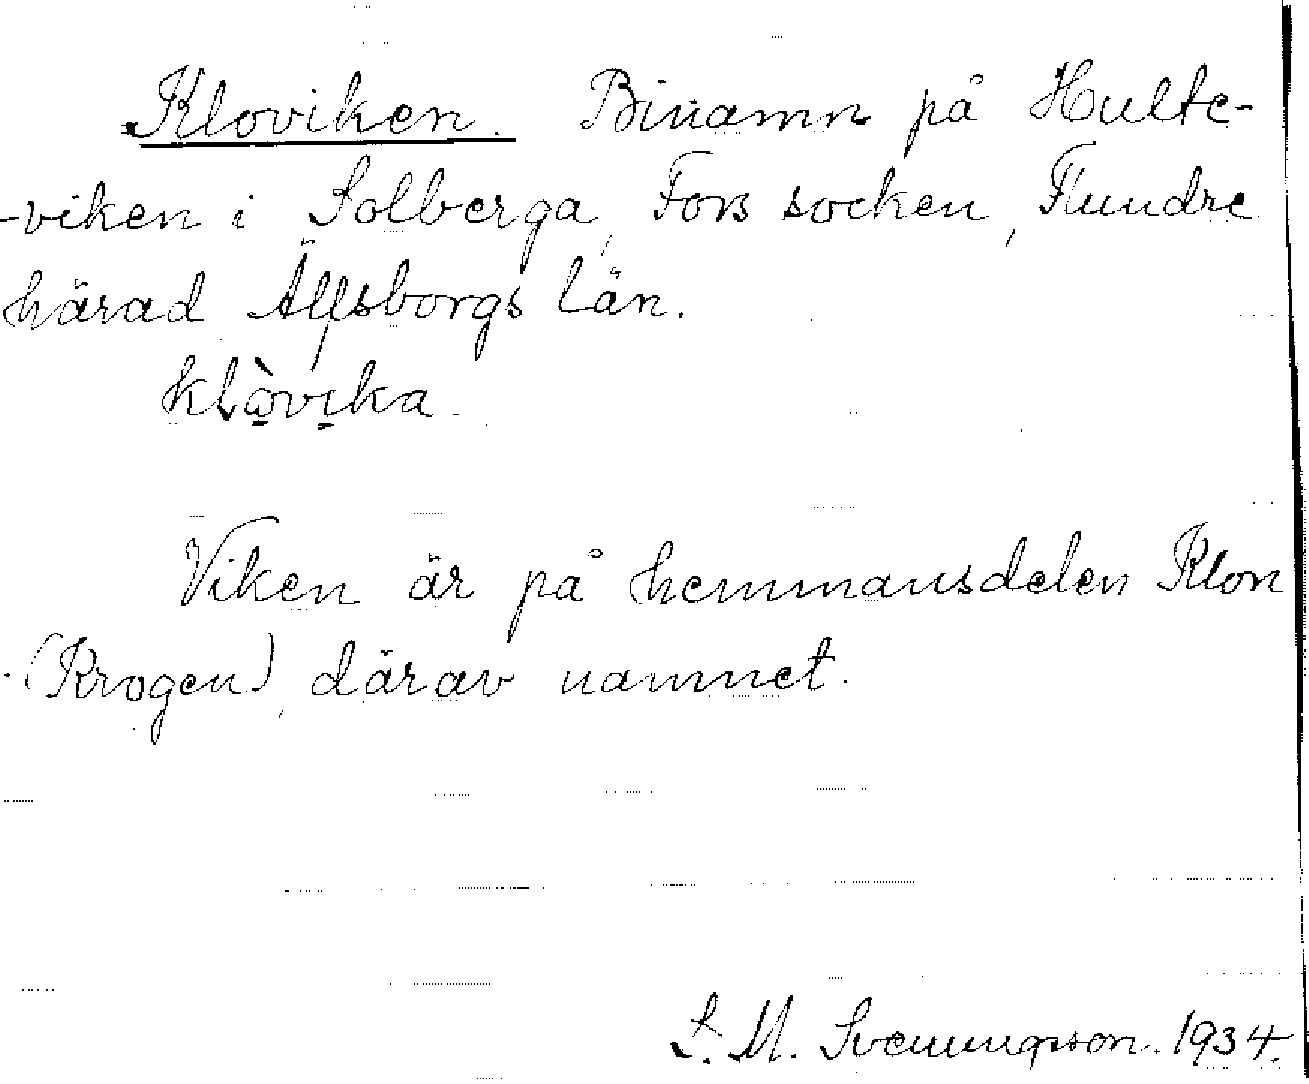 Kloviken. Binamn på Hulte-
-viken i Solberga, Fors socken, Flundre
härad Älfsborgs län.
klò̱vi̱ka.
Viken är på hemmansdelen Klon
(Krogen), därav namnet.
S. M. Svenungsson. 1934.